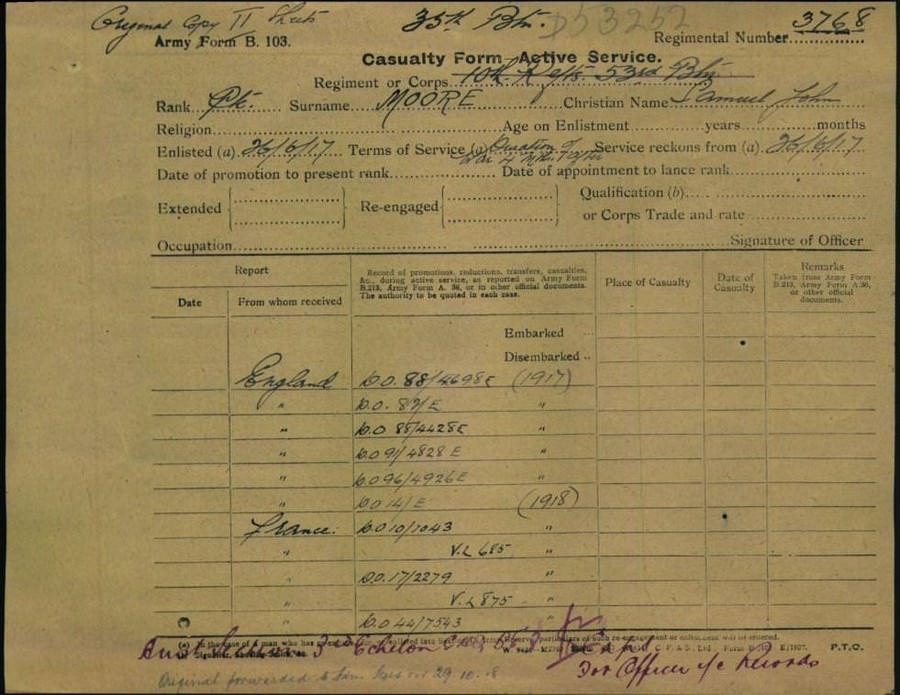 Original Copy II Sheets 35th Btn. D53252
Army Form B. 103. Regimental Number 3768
Casualty Form—Active Service.
Regiment or Corps 10th Refts 53rd Btn
Rank Pte. Surname MOORE Christian Name Samuel John
Religion Age on Enlistment years months
Enlisted (a) 26/6/17 Terms of Service (a) Duration of War & 4 Mths Service reckons from (a) 26/6/17
Date of promotion to present rank Date of appointment to lance rank
Extended Re-engaged Qualification (b)
or Corps Trade and rate
Occupation Signature of Officer
Report
Date From whom received
Record of promotions, reductions, transfers, casualties,
&c., during active service, as reported on Army Form
B.213, Army Form A. 36, or in other official documents.
The authority to be quoted in each case.
Place of Casualty
Date of
Casualty
Remarks
Taken from Army Form
B.213, Army Form A.36,
or other official
documents.
Embarked
Disembarked
England D.O. 88/4698E (1917)
" D.O. 87/E "
" D.O 88/4428E "
" D.O 91/4828 E "
" D.O 96/4926E "
" D.O 14/E (1918)
France. D.O 10/1043 "
" V.L 685 "
" D.O. 17/2279 "
" V.L 875 "
" D.O 44/7543 "
(a) In the case of a man who has re-engagement or enlistment will be entered.
P.T.O.
3rd Echelon
For Officer i/c Records
Original forwarded 29.10.18